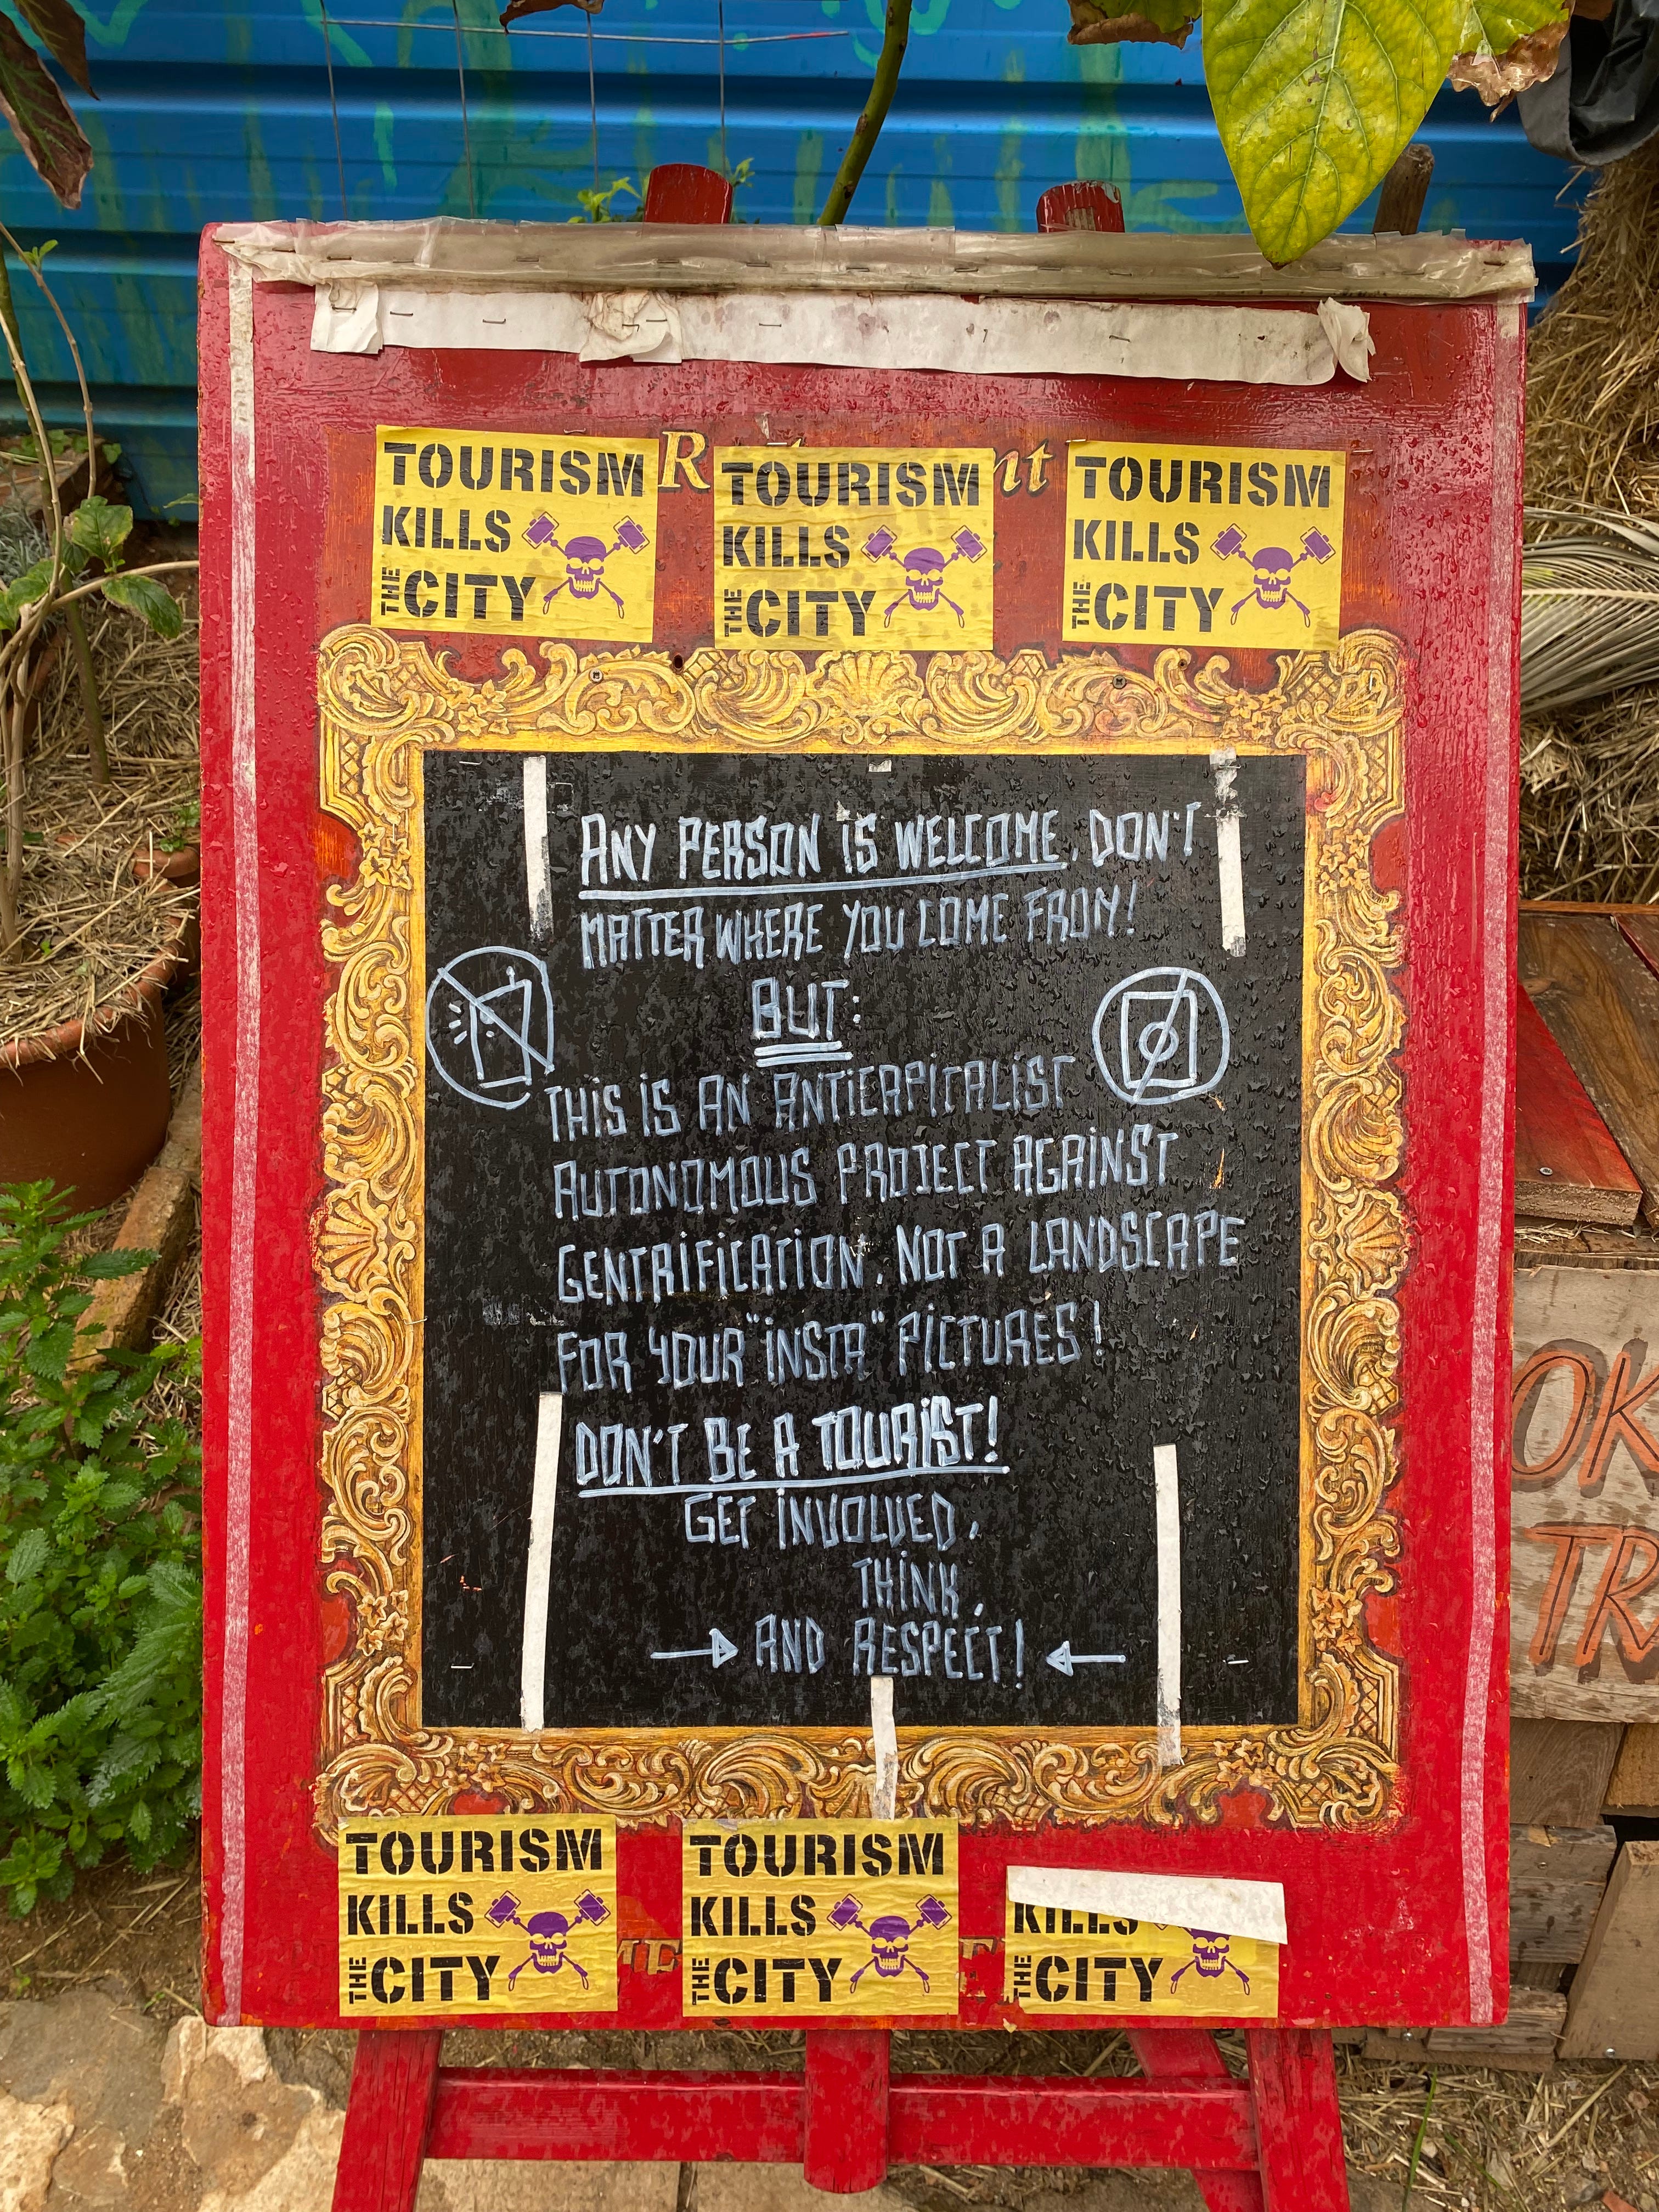 TOURISM
KILLS
THE CITY
TOURISM
KILLS
THE CITY
TOURISM
KILLS
THE CITY
ANY PERSON IS WELCOME, DON'T
MATTER WHERE YOU COME FROM!
BUT:
THIS IS AN ANTICAPITALIST
AUTONOMOUS PROJECT AGAINST
GENTRIFICATION. NOT A LANDSCAPE
FOR YOUR "INSTA" PICTURES!
DON'T BE A TOURIST!
GET INVOLVED,
THINK,
AND RESPECT!
TOURISM
KILLS
THE CITY
TOURISM
KILLS
THE CITY
KILLS
THE CITY
OK
TR